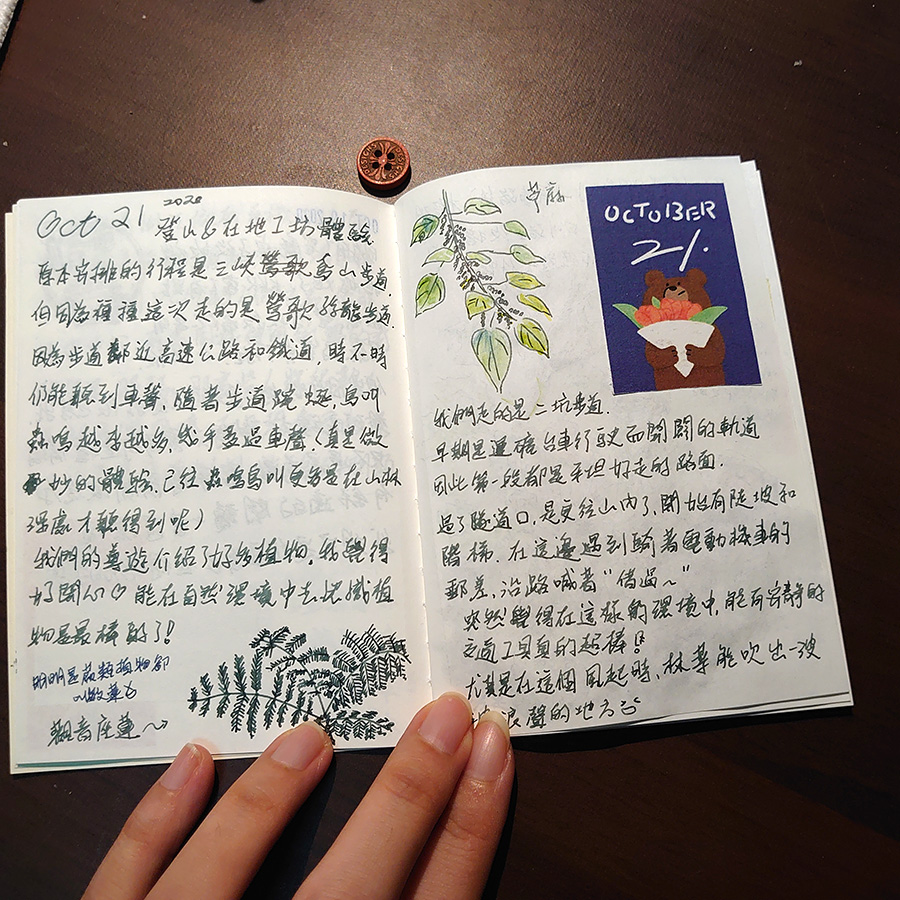 Oct 21 2020 登山&在地工坊體驗
原本安排的行程是三峽鶯歌鳥山步道,
但因為種種這次走的是鶯歌 步道.
因為步道鄰近高速公路和鐵道, 時不時
仍能聽到車聲, 隨著步道蜿蜒, 鳥叫
蟲鳴越來越多, 幾乎蓋過車聲 (真是微
妙的體驗, 已往蟲鳴鳥叫更多是在山林
深處才聽得到呢)
我們的導遊介紹了好多植物, 我覺得
好開心♡ 能在自然環境中去認識植
物是最棒的了!
明明是蕨類植物卻
叫做蓮
觀音座蓮~→
苧麻
OCTOBER
21.
我們走的是二坑步道.
早期是運礦台車行駛而開闢的軌道
因此第一段都是平坦好走的路面.
過了隧道口, 是更往山內了, 開始有陡坡和
階梯. 在這邊遇到騎著電動機車的
郵差, 沿路喊著“借過~”
突然覺得在這樣的環境中, 能有安靜的
交通工具真的超棒!
尤其是在這個風起時, 林葉能吹出一波
浪聲的地方